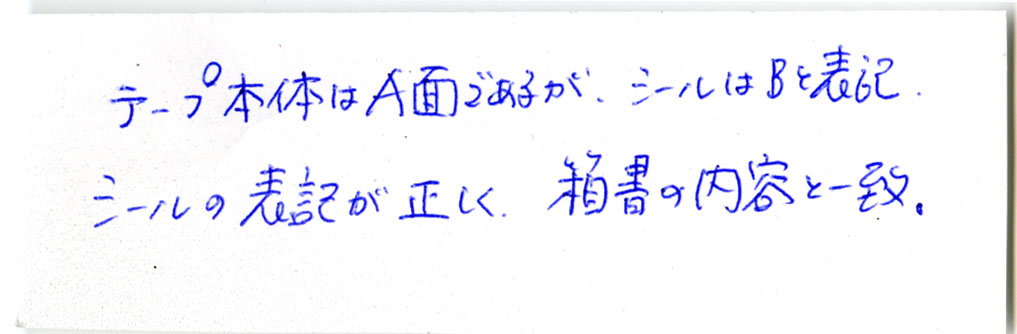 テープ本体はA面であるが、シールはBと表記.
シールの表記が正しく、箱書の内容と一致。